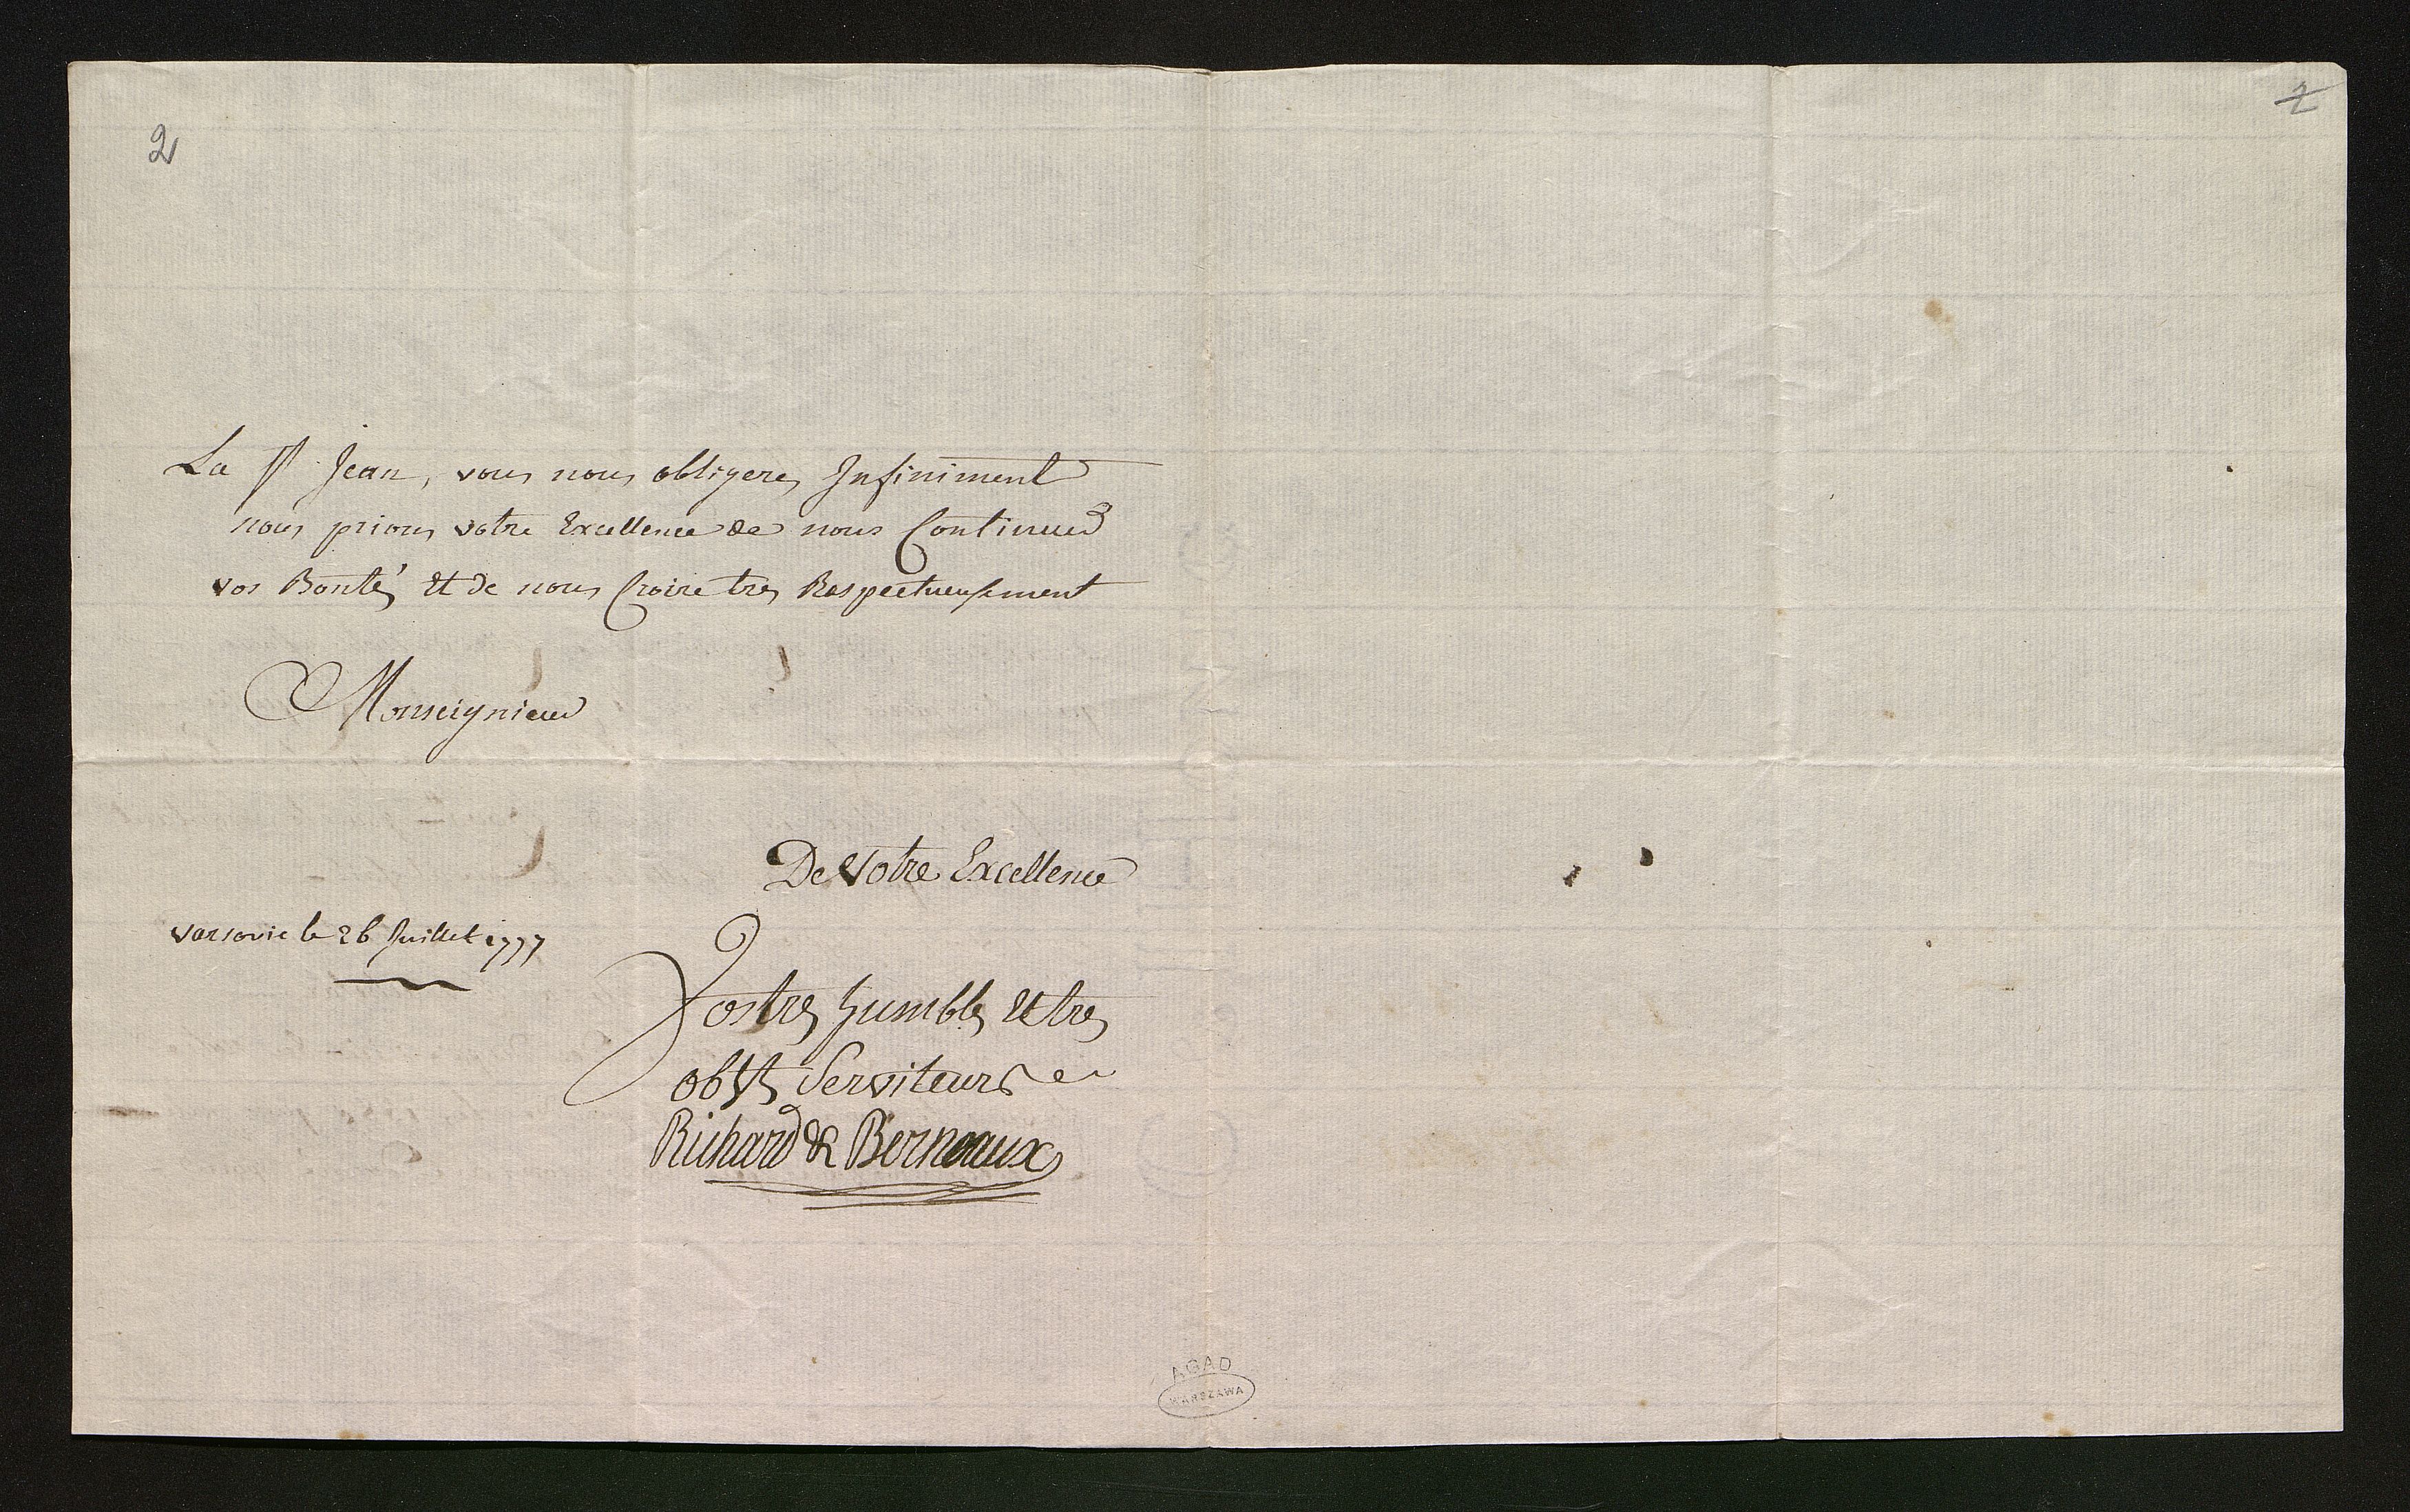 2
La St Jean, vous nous obligeres Infiniment
nous prions votre Excellence de nous Continuer
vos Bontés et de nous Croire tres Respectueusement
Monseignieur
De Votre Excellence
varsovie le 26 Juillet 1777
Vostres humbles et tres
obts Serviteurs
Richard & Berneaux
AGAD
WARSZAWA